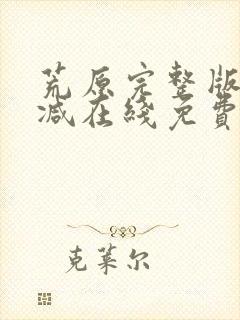 荒原完整版
减在綫免費
克莱尔